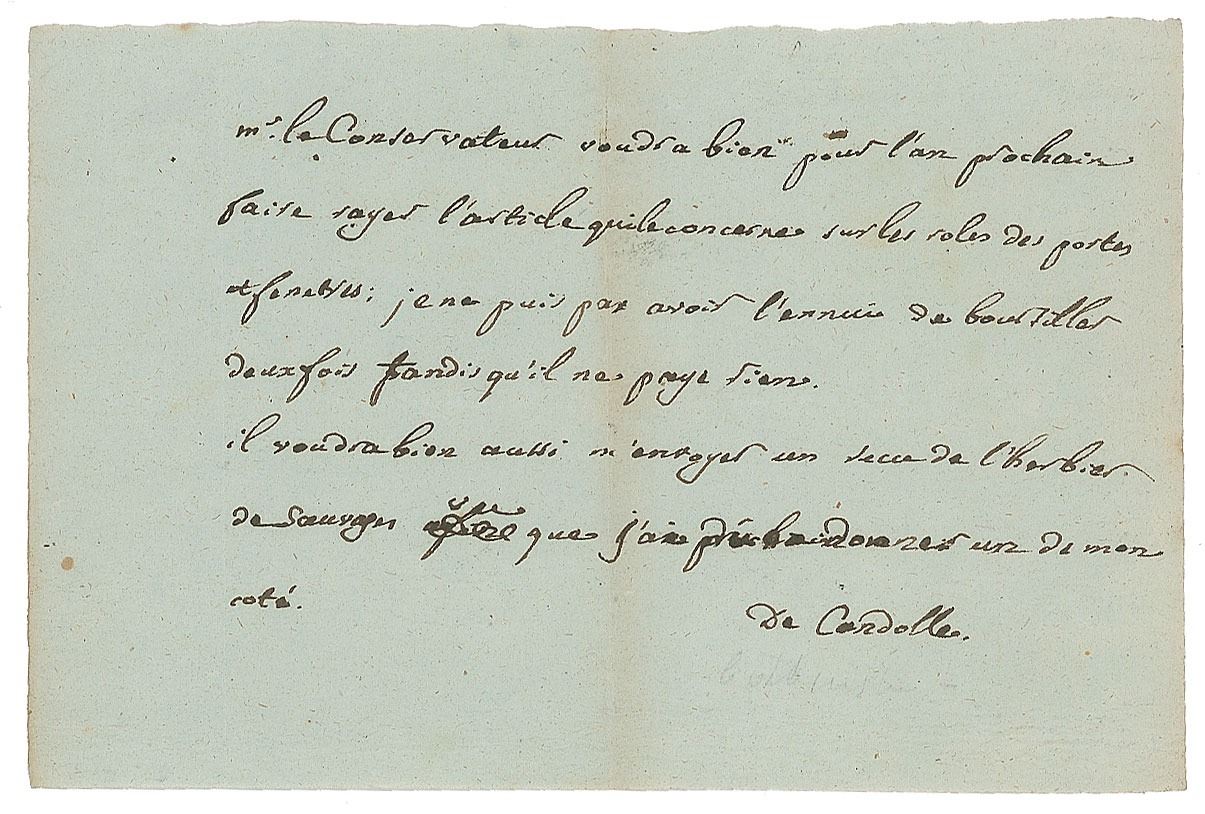 mr. le Conservateur voudra bien pour l'an prochain
faire rayer l'article qui le concerne sur les roles des portes
et fenetres; je ne puis pas avoir l'ennui de boursiller
deux fois tandis qu'il ne paye rien.
il voudra bien aussi m'envoyer un recu de l'herbier
de Sauvages que j'ai donner un de mon
coté.
De Candolle.